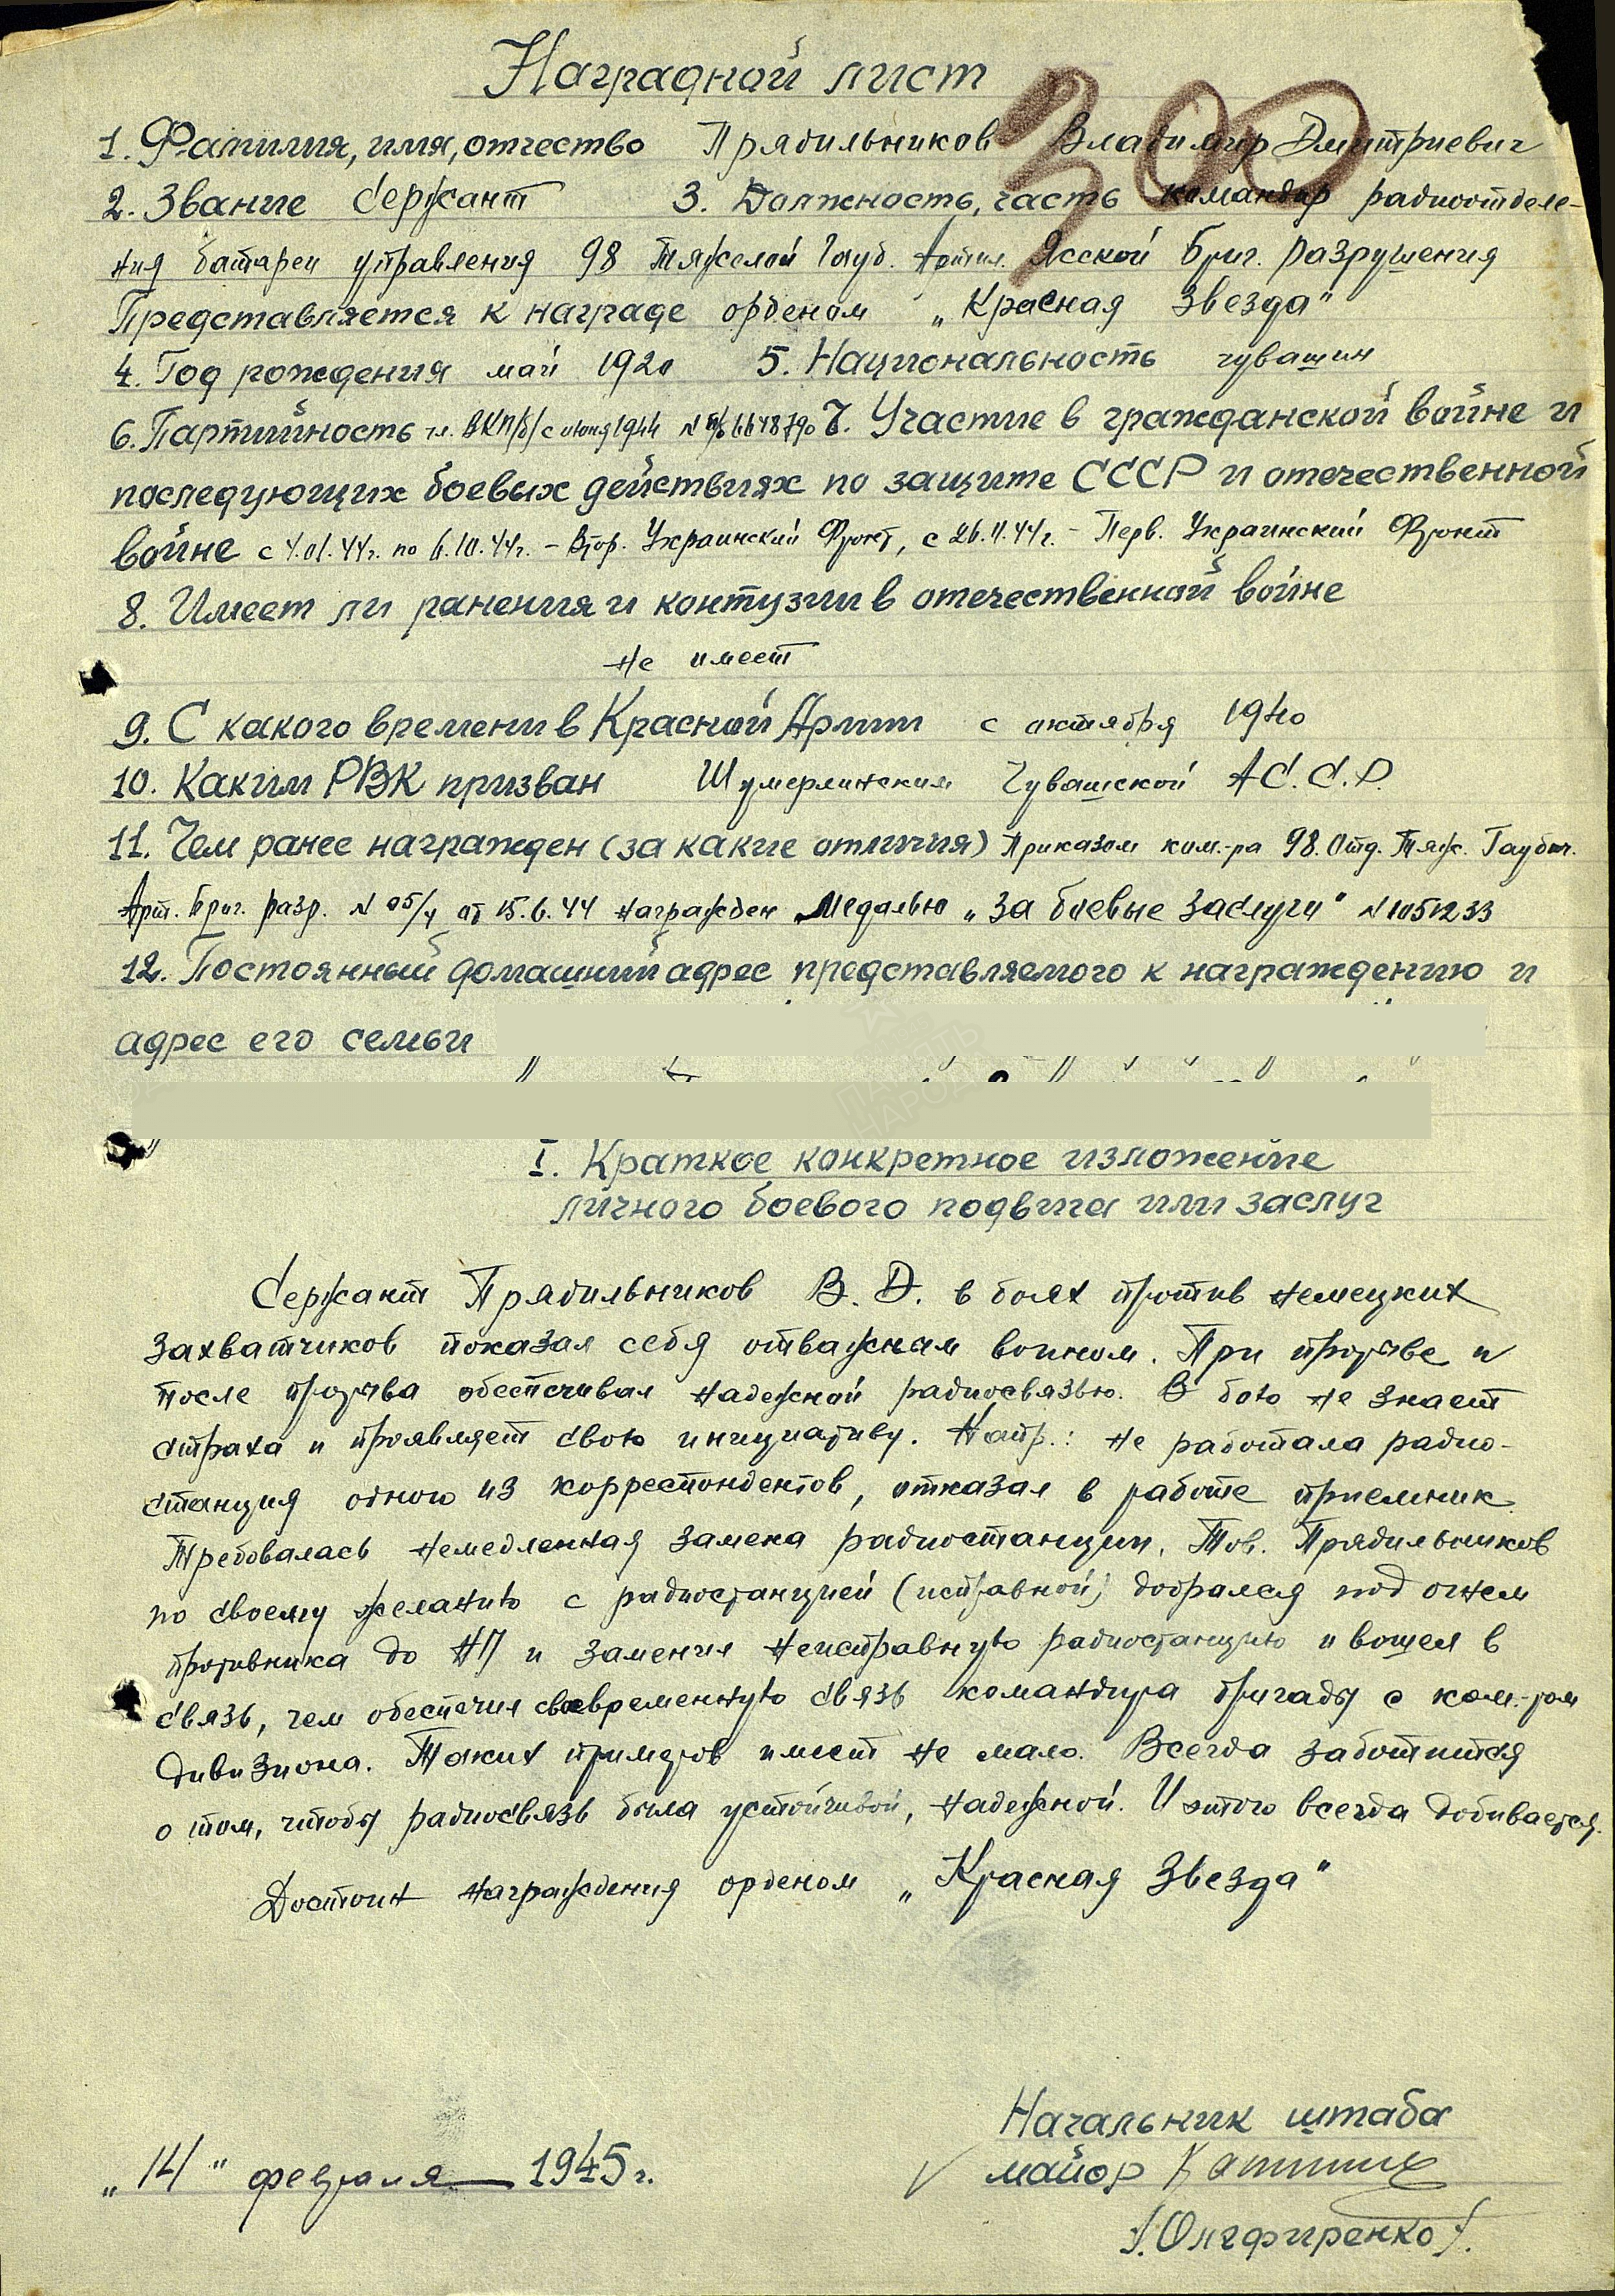 Наградной лист
300
1. Фамилия, имя, отчество Прядильников Владимир Дмитриевич
2. Звание Сержант 3. Должность, часть командир радиоотделе-
ния батареи управления 98 Тяжелой Гауб. Артил. Ясской Бриг. разрушения
Представляется к награде орденом „Красная Звезда"
4. Год рождения май 1920 5. Национальность чувашин
6. Партийность чл. ВКП/б/ с июня 1944 N п/б 6648790 7. Участие в гражданской войне и
последующих боевых действиях по защите СССР и отечественной
войне с 4.01.44г. по 6.10.44г. – Втор. Украинский Фронт, с 26.11.44г. – Перв. Украинский Фронт
8. Имеет ли ранения и контузии в отечественной войне
не имеет
9. С какого времени в Красной Армии с октября 1940
10. Каким РВК призван Шумерлинским Чувашской АС.С.Р.
11. Чем ранее награжден (за какие отличия) Приказом ком.-ра 98. Отд. Тяж. Гаубич.
Арт. Бриг. разр. N 05/н от 15.6.44 награжден Медалью „За боевые заслуги" N 1051233
12. Постоянный домашний адрес представляемого к награждению и
адрес его семьи
ПАМЯТЬ
НАРОДА
I. Краткое конкретное изложение
личного боевого подвига или заслуг
Сержант Прядильников В. Д. в боях против немецких
захватчиков показал себя отважным воином. При прорыве и
после прорыва обеспечивал надежной радиосвязью. В бою не знает
страха и проявляет свою инициативу. Напр.: не работала радио-
станция одного из корреспондентов, отказал в работе приемник
Требовалась немедленная замена радиостанции. Тов. Прядильников
по своему желанию с радиостанцией (исправной) добрался под огнем
противника до НП и заменил неисправную радиостанцию и вошел в
связь, чем обеспечил своевременную связь командира бригады с ком.-ром
дивизиона. Таких примеров имеет не мало. Всегда заботится
о том, чтобы радиосвязь была устойчивой, надежной. И этого всегда добивается.
Достоин награждения орденом „Красная Звезда"
Начальник штаба
„14" февраля 1945г. майор
/.Олефиренко/.